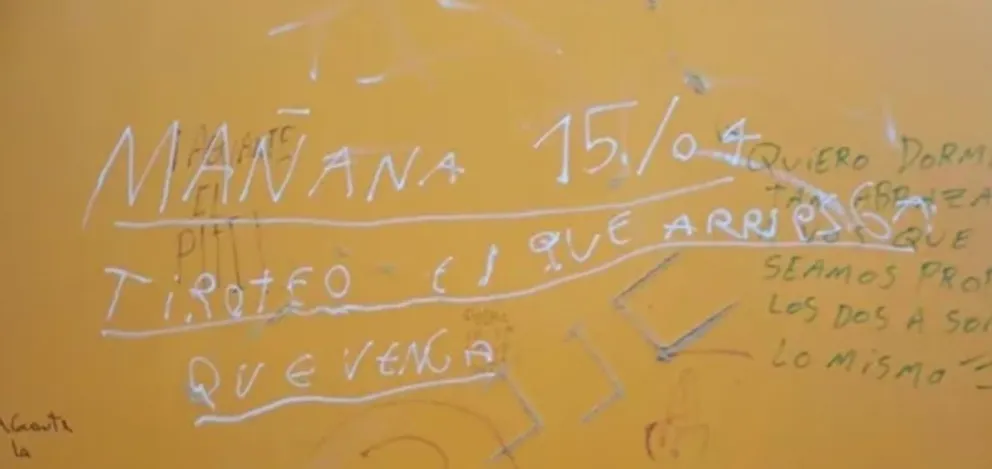 MAÑANA 15/04
TIROTEO EL QUE ARRIESGA
QUE VENGA
AGUANTE
EL
QUIERO DORMI
TAN ABRAZA
QUE
SEAMOS PROP
LOS DOS A SOÑ
LO MISMO
AGUANTE
la